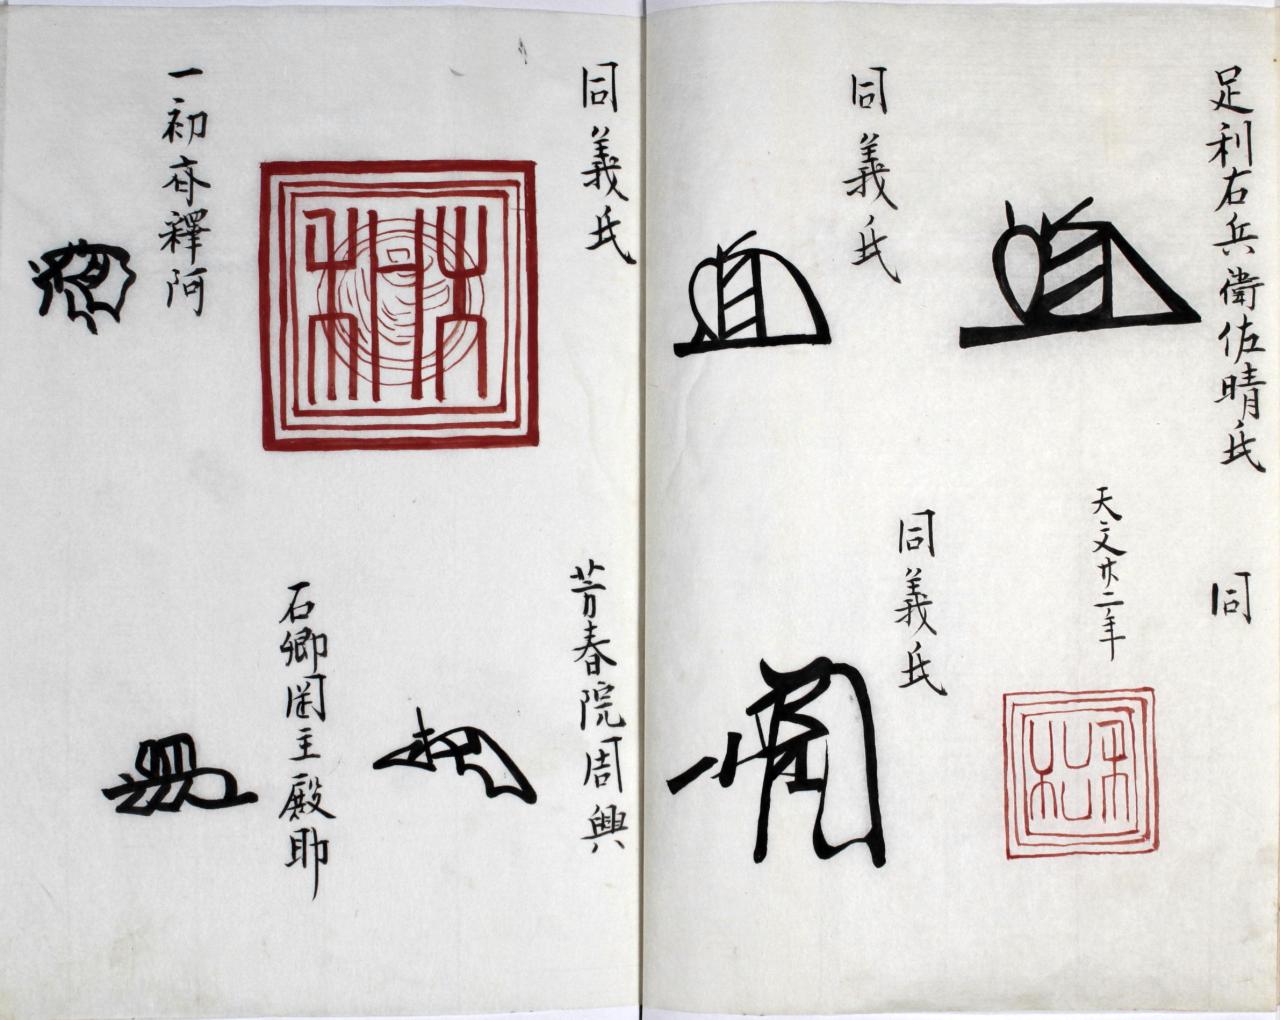 足利右兵衛佐晴氏
同
天文廿二年
同義氏
同義氏
同義氏
芳春院周興
石卿岡主殿助
一初斎釋阿